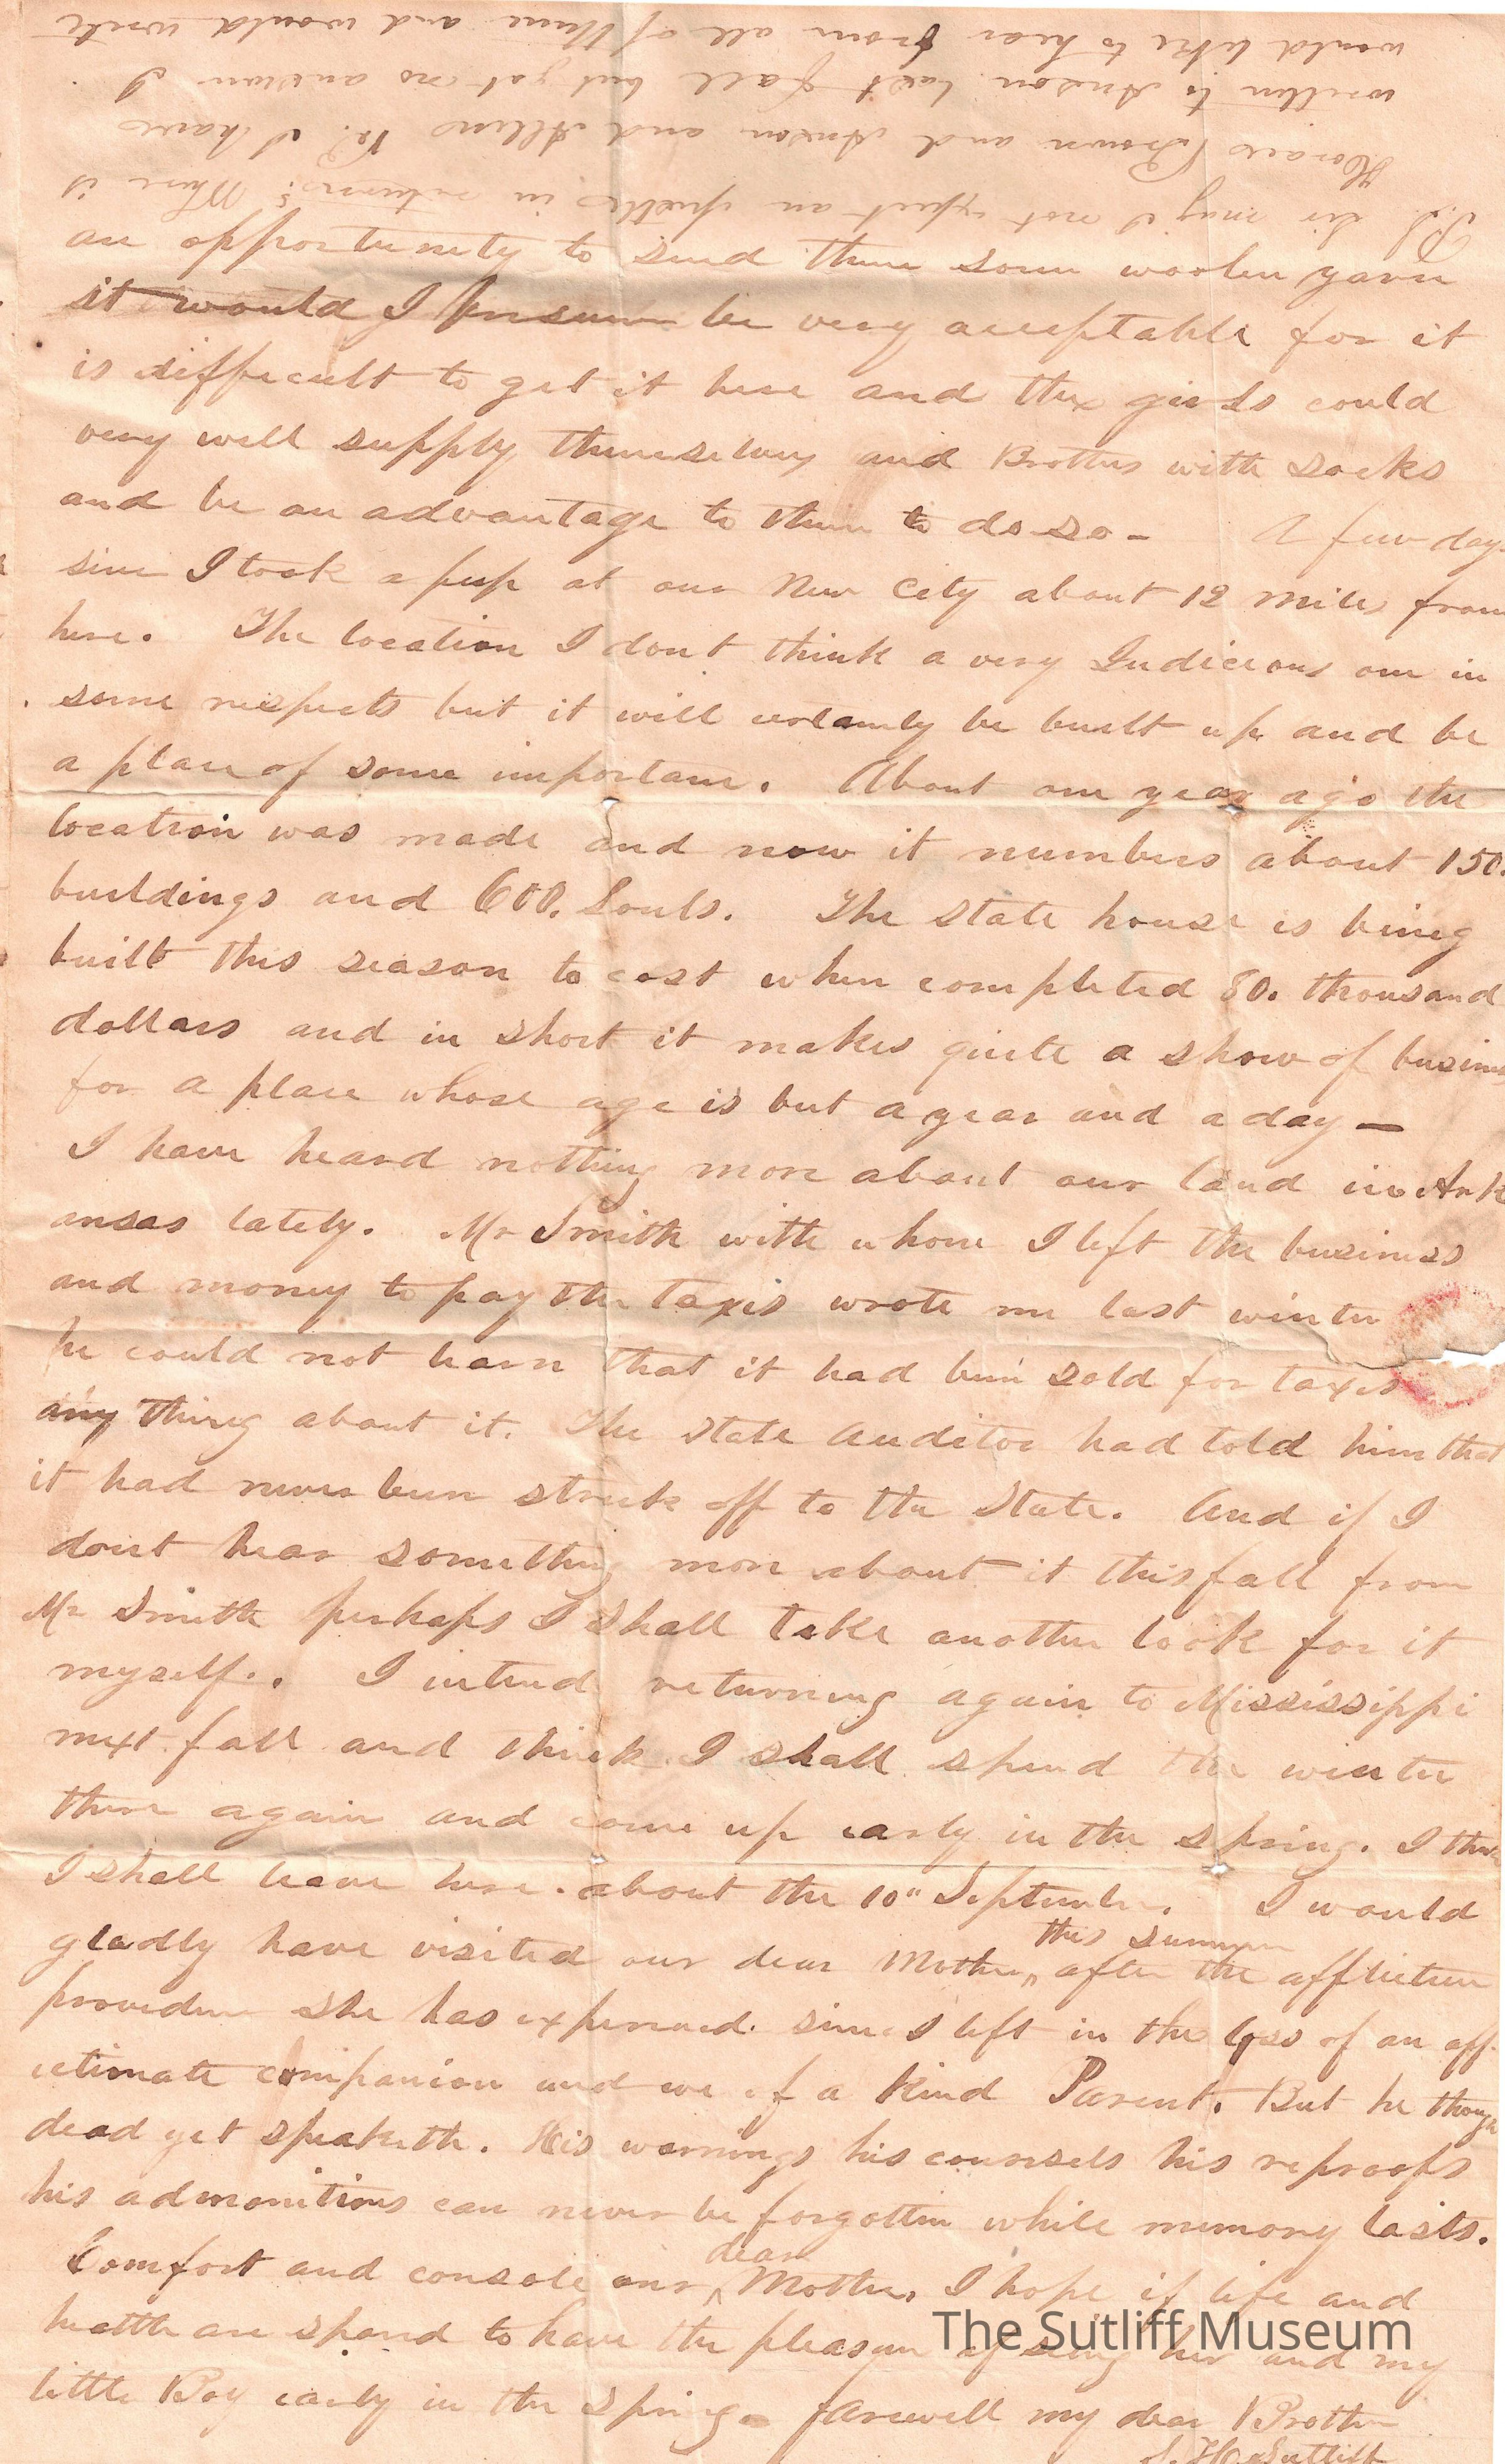 P.S. Sir may I not expect an epistle in return? Where is
Horace Brown and Anson and Allens &c. I have
written to Anson last fall but got no answer I
would like to hear from all of them and would write
an opportunity to send them some woolen yarn
it would I presume be very acceptable for it
is difficult to get it here and the girls could
very well supply themselves and Brothers with socks
and be an advantage to them to do so - A few days
since I took a peep at our New City about 12 miles from
here. The location I dont think a very Judicious one in
some respects but it will certainly be built up and be
a place of some importance. About one year ago the
location was made and now it numbers about 150.
buildings and 600. Souls. The State house is being
built this season to cost when completed 80. thousand
dollars and in short it makes quite a show of business
for a place whose age is but a year and a day —
I have heard nothing more about our land in Ark
ansas lately. Mr Smith with whom I left the business
and money to pay the taxes wrote me last winter
he could not learn that it had been sold for taxes
any thing about it. The State Auditor had told him that
it had never been struck off to the State. And if I
dont hear something more about it this fall from
Mr Smith perhaps I shall take another look for it
myself. I intend returning again to Mississippi
next fall and think I shall spend the winter
there again and come up early in the spring. I think
I shall leave here about the 10" September. I would
gladly have visited our dear Mother this summer after the afflictive
providence she has experienced since I left in the loss of an aff
ectionate companion and we of a kind Parent. But he though
dead yet speaketh. His warnings his counsels his reproofs
his admonitions can never be forgotten while memory lasts.
Comfort and console our dear Mother. I hope if life and
health are spared to have the pleasure of seeing her and my
little Boy early in the spring - farewell my dear Brother
S. H. Sutliff
The Sutliff Museum